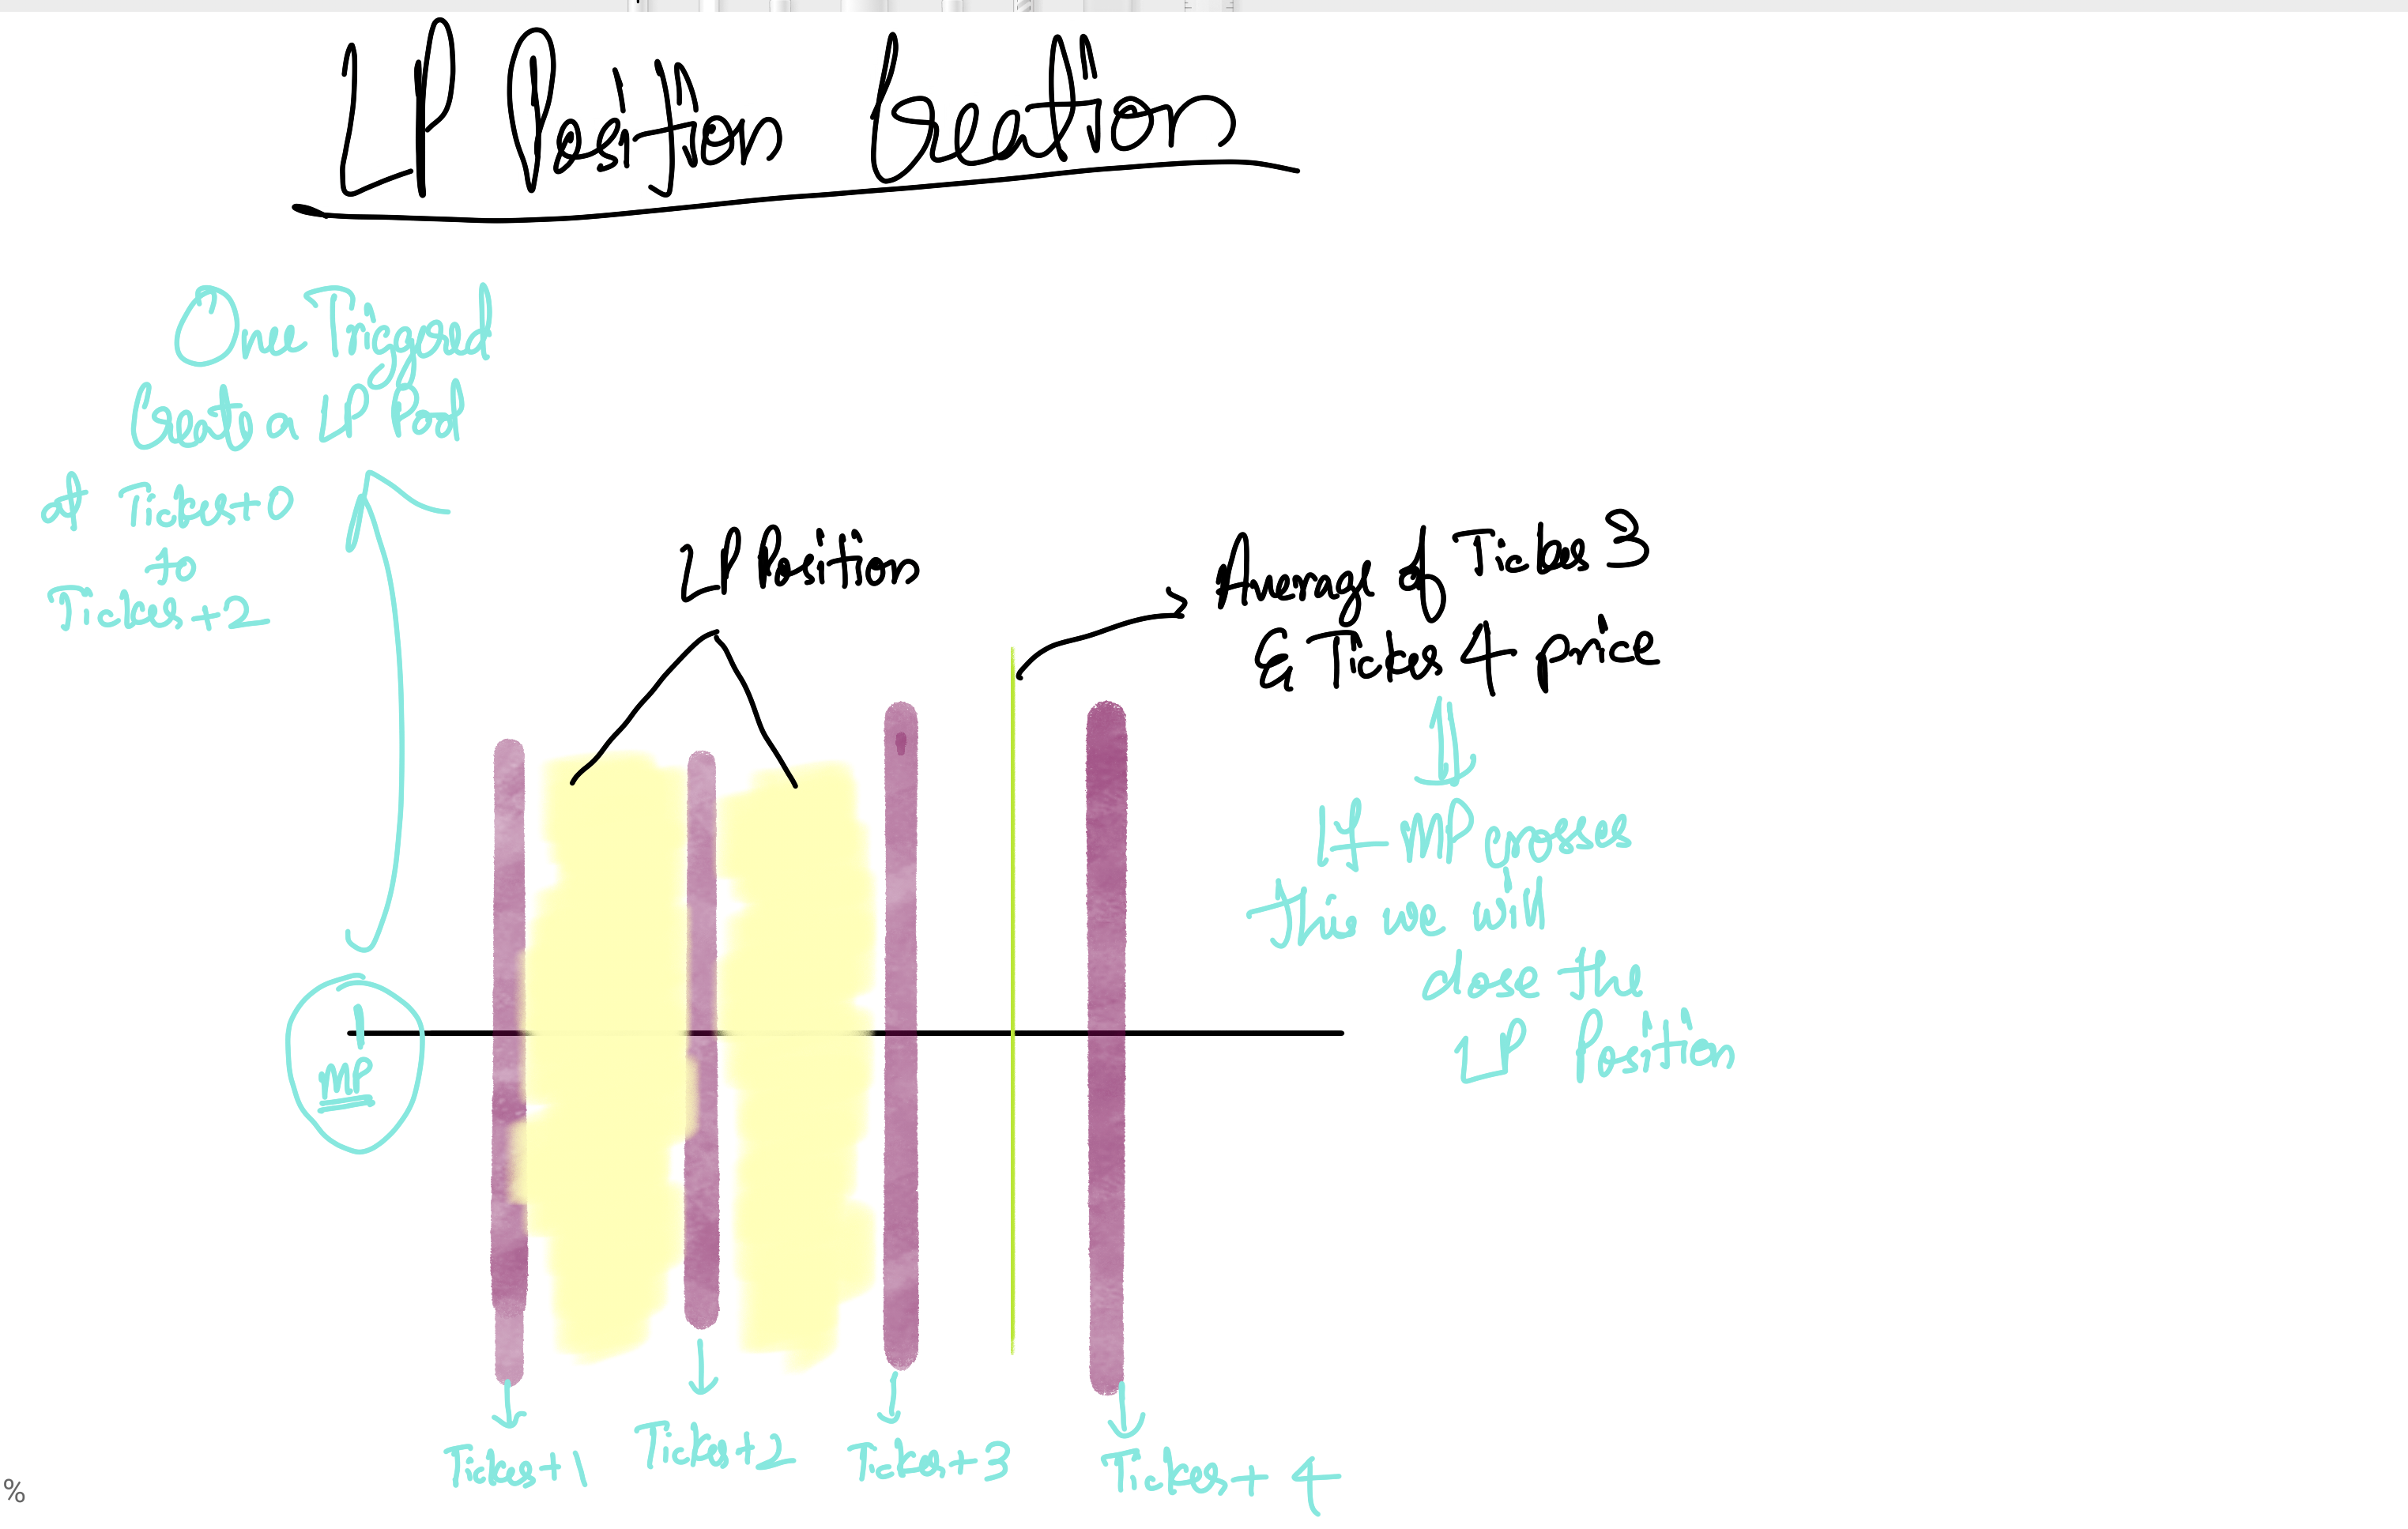 LP Position Creation
Once Triggered
Create a LP Pool
at Ticker+0
to
Ticker+2
LP Position
Average of Ticker 3
& Ticker 4 price
If MP crosses
this we will
close the
LP Position
MP
Ticker+1
Ticker+2
Ticker+3
Ticker+4
%